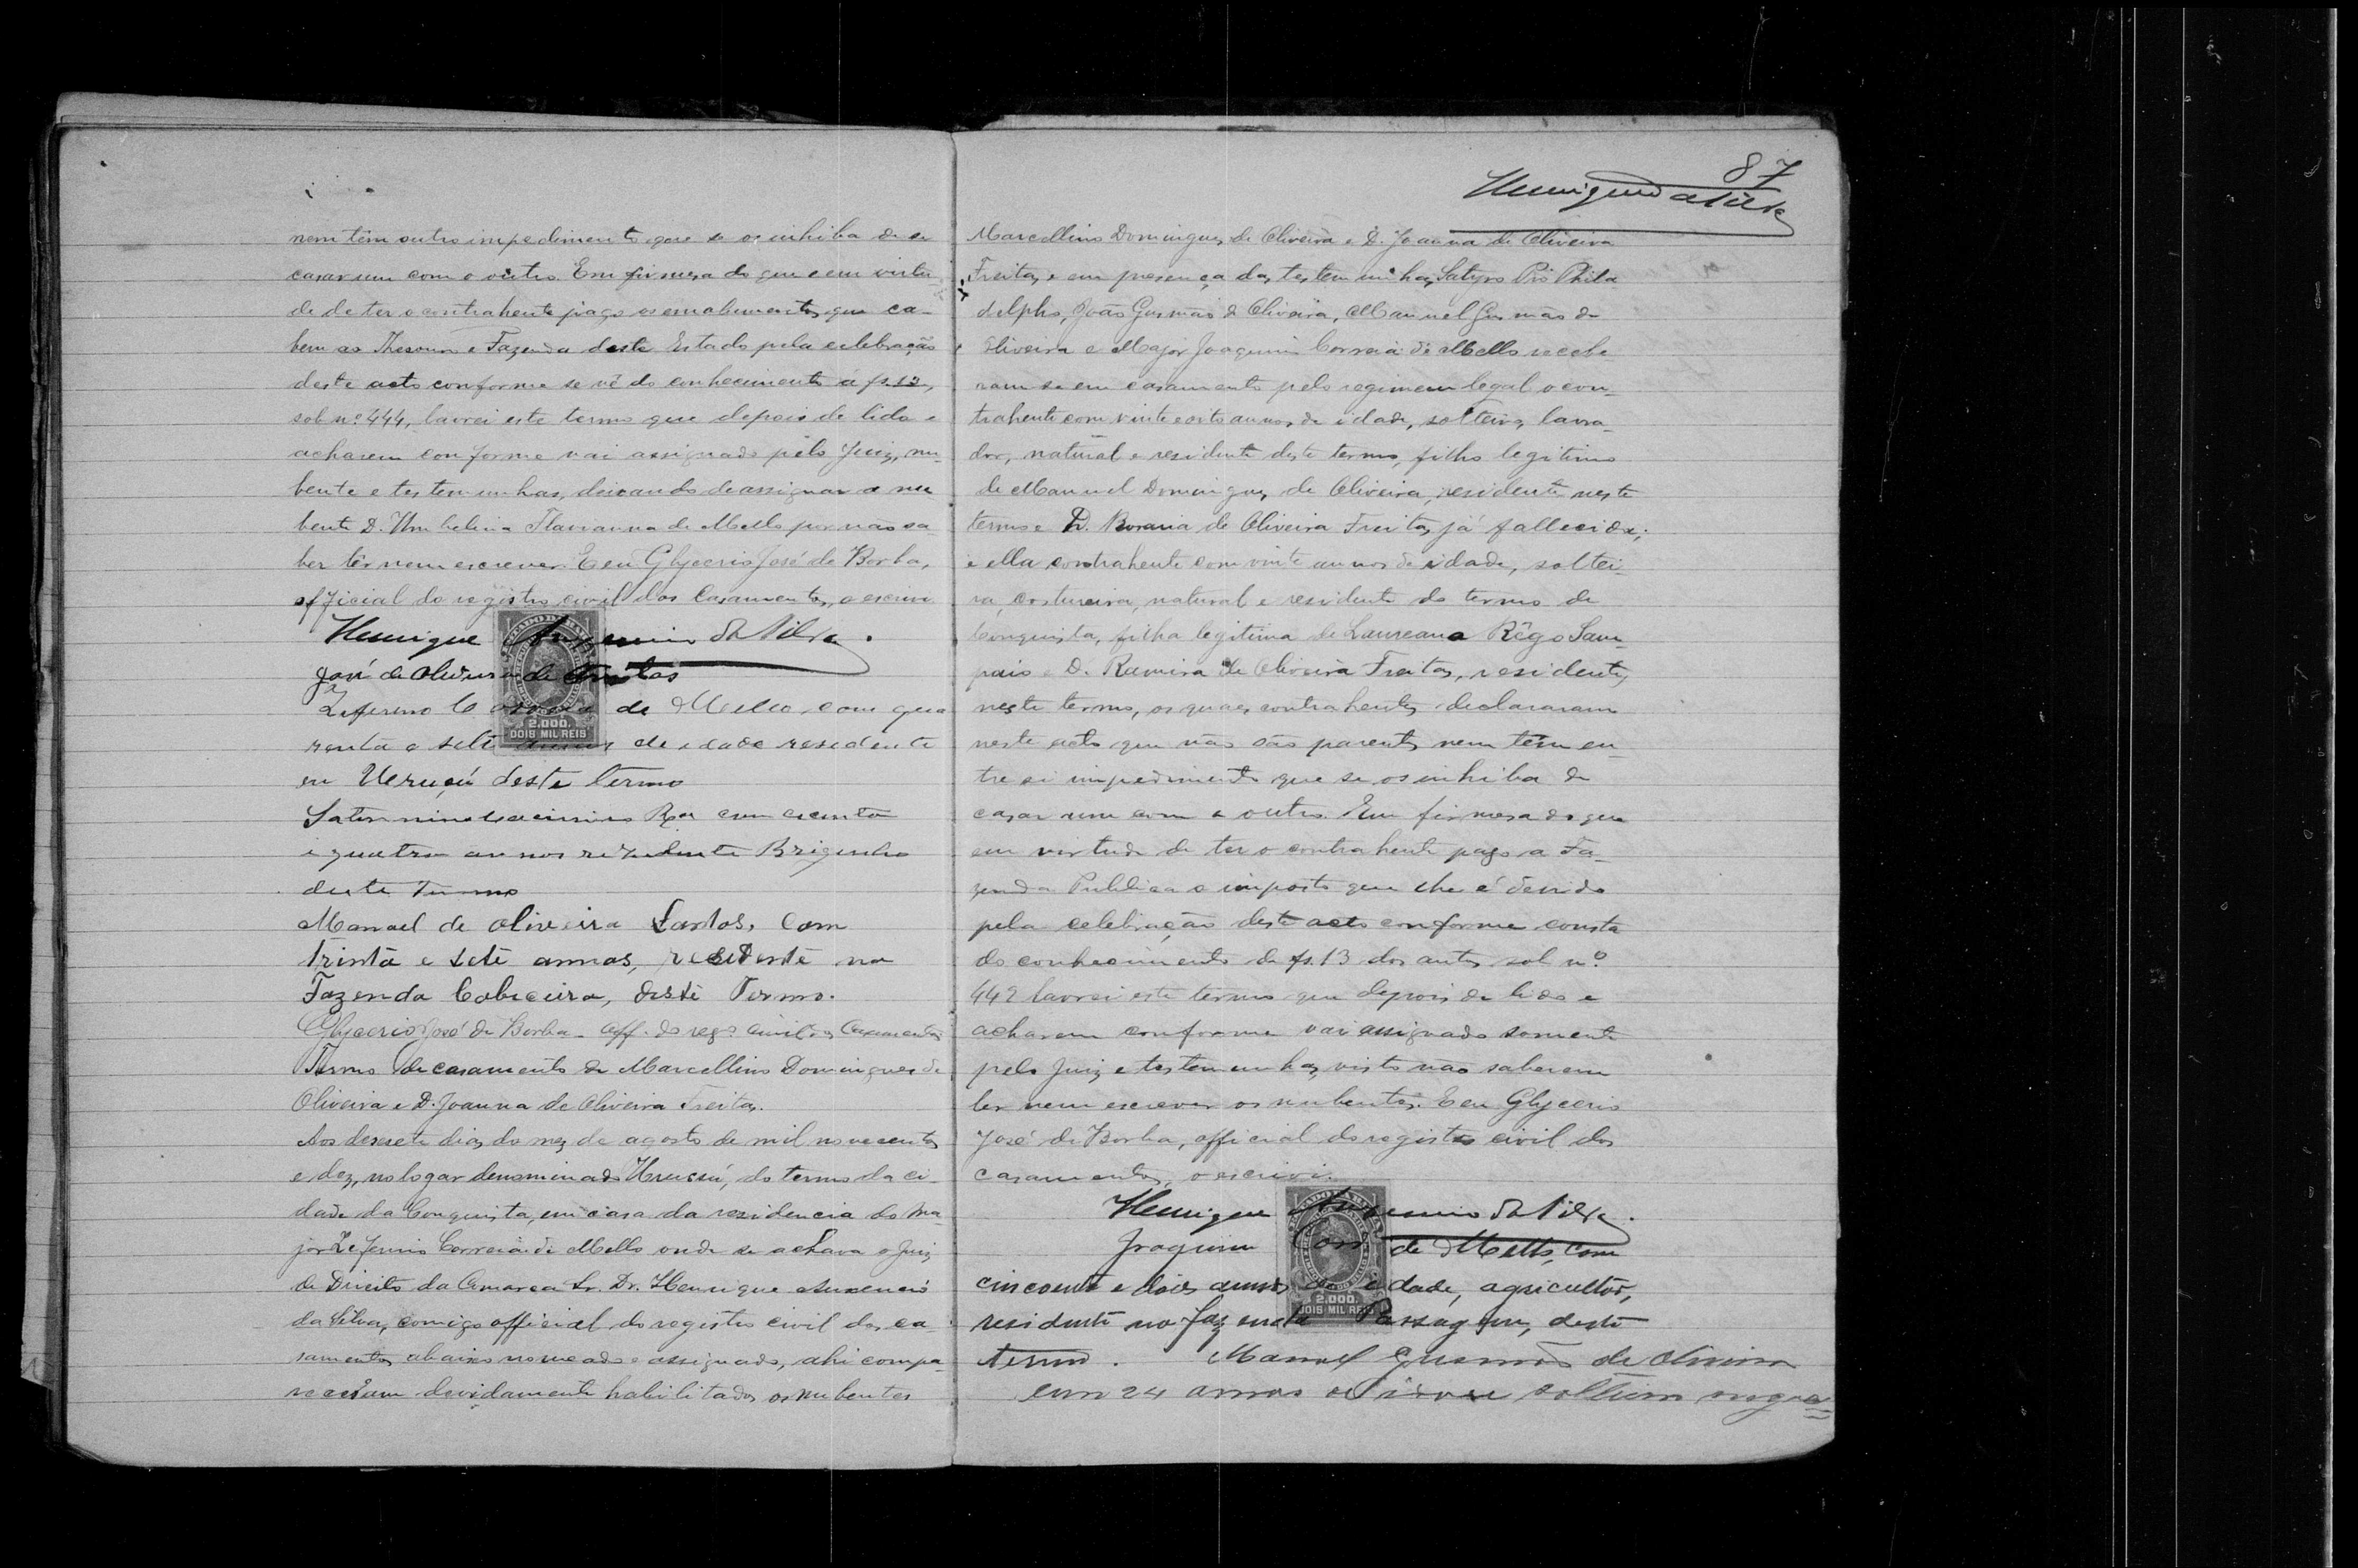 nem têm outro impedimento que se os inhiba de se
casar um com o outro. Em firmesa do que e em virtu
de de ter o contrahente pago os emolumentos que ca-
bem ao Thesouro e Fazenda deste Estado pela celebração
deste acto conforme se vê do conhecimento á fs. 12,
sob nº 444, lavrei este termo que depois de lido e
acharem conforme vai assignado pelo Juiz, nu-
bente e testemunhas, deixando de assignar a nu
bente D. Umbelina de Mello por não sa-
ber lêr nem escrever. E eu Glycerio José de Borba,
official do registro civil dos Casamentos, o escrevi
Henrique da Silva.
José de Oliveira de Freitas
Zeferino Correia de Mello com qua
renta e sete annos de idade residente
em Uruçú deste termo
Saturnino com
e quatro annos rezidente
deste Termo
Manoel de Oliveira Santos, com
trinta e sete annos, residente na
Fazenda Cabeceira, deste Termo.
Glycerio José de Borba - off. do reg.º civil dos Casamentos
Termo de casamento de Marcellino Domingues de
Oliveira e D. Joanna de Oliveira Freitas.
Aos desesete dias do mez de agosto de mil novecentos
e dez, no logar denominado Urussú, do termo da ci-
dade da Conquista, em casa da residencia do Ma-
jor Zeferino Correia de Mello onde se achava o Juiz
de Direito da Comarca Sr. Dr. Henrique
da Silva, comigo official do registro civil dos ca-
samentos abaixo nomeado e assignado, ahi compa-
receram devidamente habilitados os nubentes
87
Henrique da Silva
Marcellino Domingues de Oliveira e D. Joanna de Oliveira
Freitas e em presença das testemunhas Satyro Pio Phila
delpho, João Gusmão de Oliveira, Manuel Gusmão de
Oliveira e Major Joaquim Correia de Mello recebe
ram-se em casamento pelo regimem legal o con-
trahente com vinte e oito annos de idade, solteiro, lavra-
dor, natural e residente deste termo, filho legitimo
de Manuel Domingues de Oliveira, residente neste
termo e D. de Oliveira Freitas, já fallecida;
e ella contrahente com vinte annos de idade, soltei-
ra, costureira, natural e residente do termo de
Conquista, filha legitima de Laureano Rêgo Sam-
paio e D. Ramira de Oliveira Freitas, residentes
neste termo, os quaes contrahentes declararam
neste acto que não são parentes nem têm en-
tre si impedimento que se os inhiba de
casar um com o outro. Em firmesa do que
em virtude de ter o contrahente pago a Fa-
zenda Publica o imposto que lhe é devido
pela celebração deste acto conforme consta
do conhecimento de fs. 13 dos autos sob nº
442 lavrei este termo que depois de lido e
acharem conforme vai assignado somente
pelo Juiz e testemunhas, visto não saberem
ler nem escrever os nubentes. E eu Glycerio
José de Borba, official do registro civil dos
casamentos, o escrivi.
Henrique da Silva.
Joaquim Corr de Mello, com
cincoenta e dois annos de idade, agricultor,
residente na fazenda Passagem, deste
termo. Manuel Gusmão de Oliveira
com 24 annos de idade solteiro
2.000.
DOIS MIL REIS
2.000.
DOIS MIL REIS